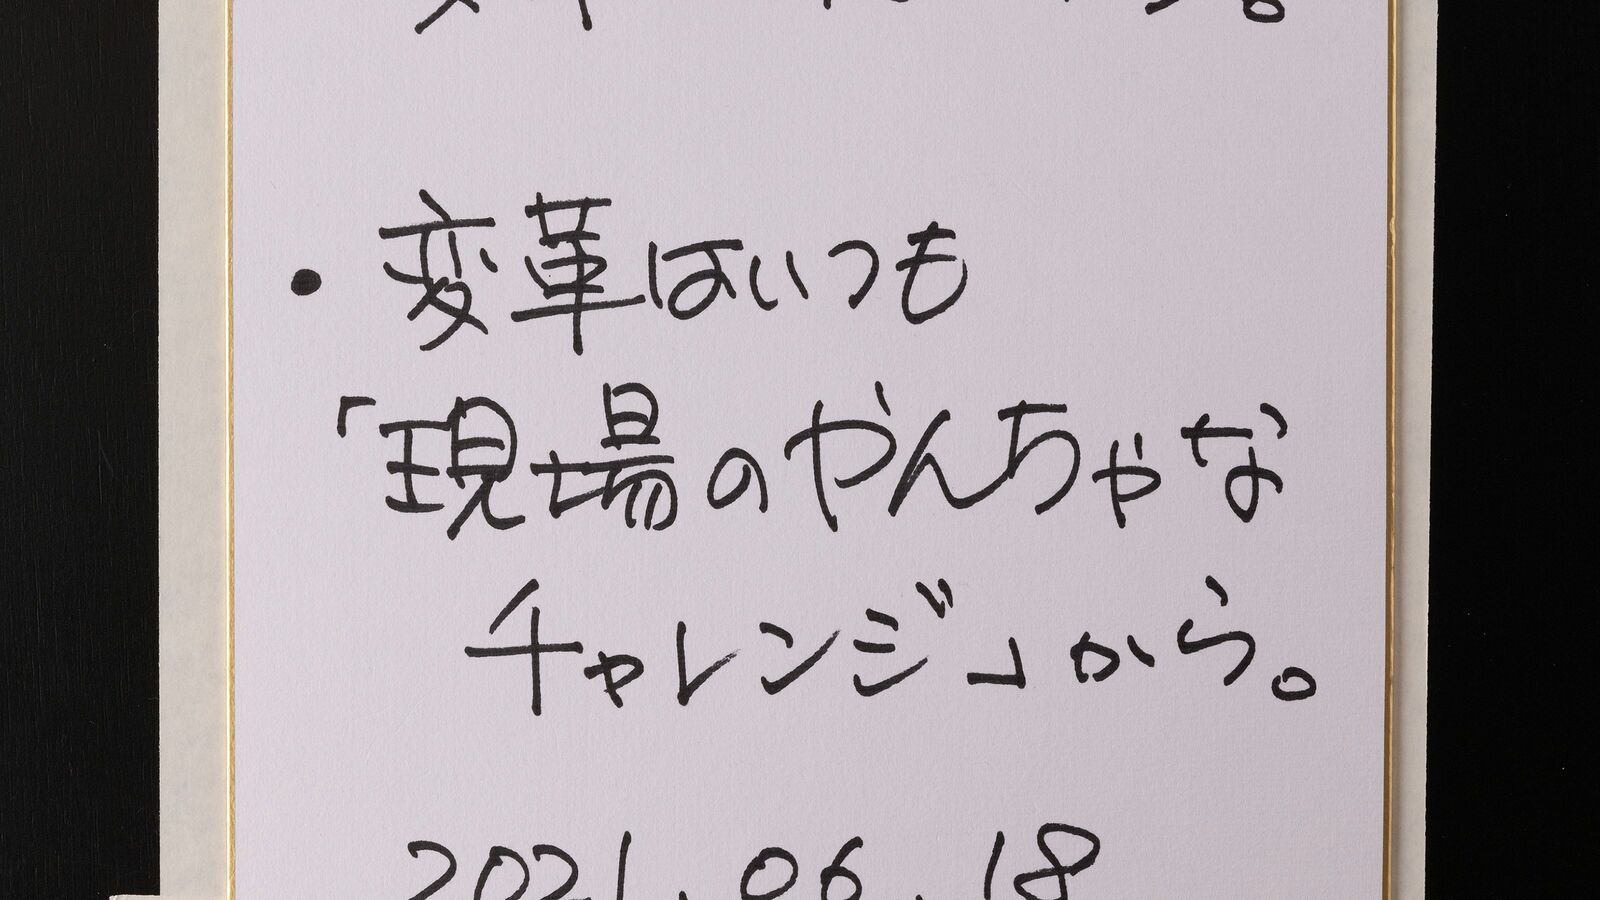 ・変革はいつも
「現場のやんちゃな
チャレンジ」から。
2021.06.18